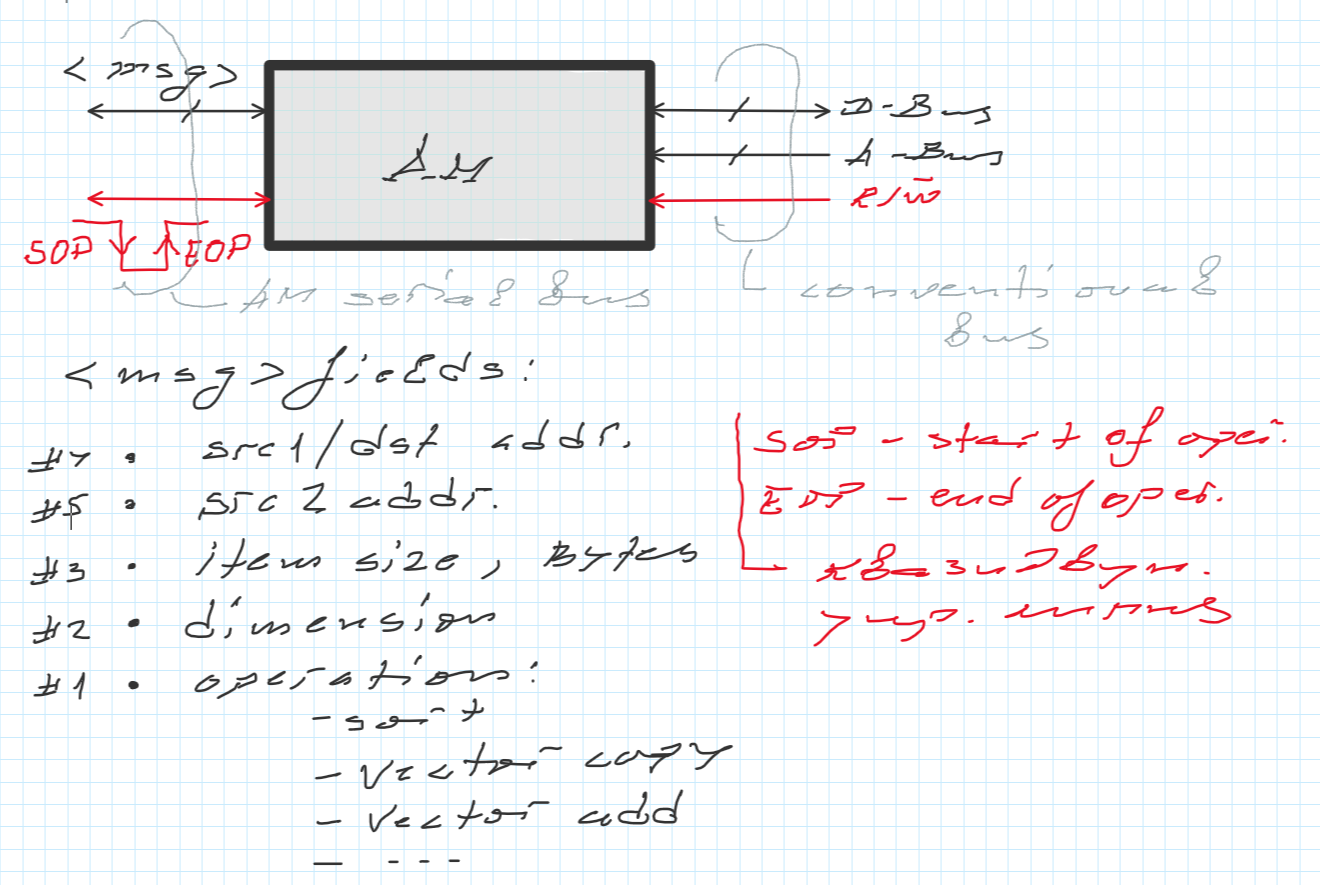 < msg >
D-Bus
AM
A-Bus
R/W̄
SOP EOP
AM serial bus
conventional
Bus
< msg > fields:
#4 • src1/dst addr.
#5 • src 2 addr.
#3 • item size, Bytes
#2 • dimension
#1 • operation:
- sort
- vector copy
- vector add
- ---
SOP - start of oper.
EOP - end of oper.